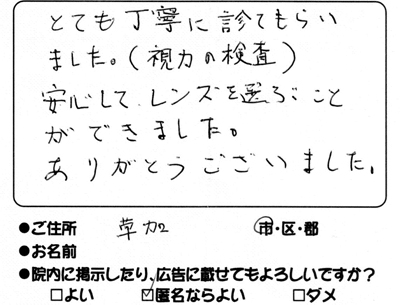 とても丁寧に診てもらい
ました。(視力の検査)
安心して、レンズを選ぶこと
ができました。
ありがとうございました。
●ご住所 草加 市・区・郡
●お名前
●院内に掲示したり、広告に載せてもよろしいですか？
□よい ☑匿名ならよい □ダメ